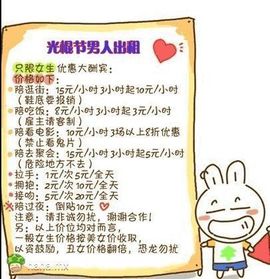 光棍节男人出租
只限女生 优惠大酬宾:
价格如下:
·陪逛街: 15元/小时3小时起10元/小时
(鞋底要报销)
·陪吃饭: 8元/小时3小时起3元/小时
(雇主请客制)
·陪看电影: 10元/小时3场以上8折优惠
(禁止看鬼片)
·陪去聚会: 15元/小时3小时起5元/小时
(危险地方不去)
·拉手: 1元/次5元/全天
·拥抱: 2元/次10元/全天
·接吻: 5元/次20元/全天
·陪过夜: 倒贴10元
注意: 请非诚勿扰,谢谢合作!
另: 以上价位均对而言,
一般女生价格按美女价收取,
以资鼓励,丑女价格翻倍,恐龙勿扰
haha.mx